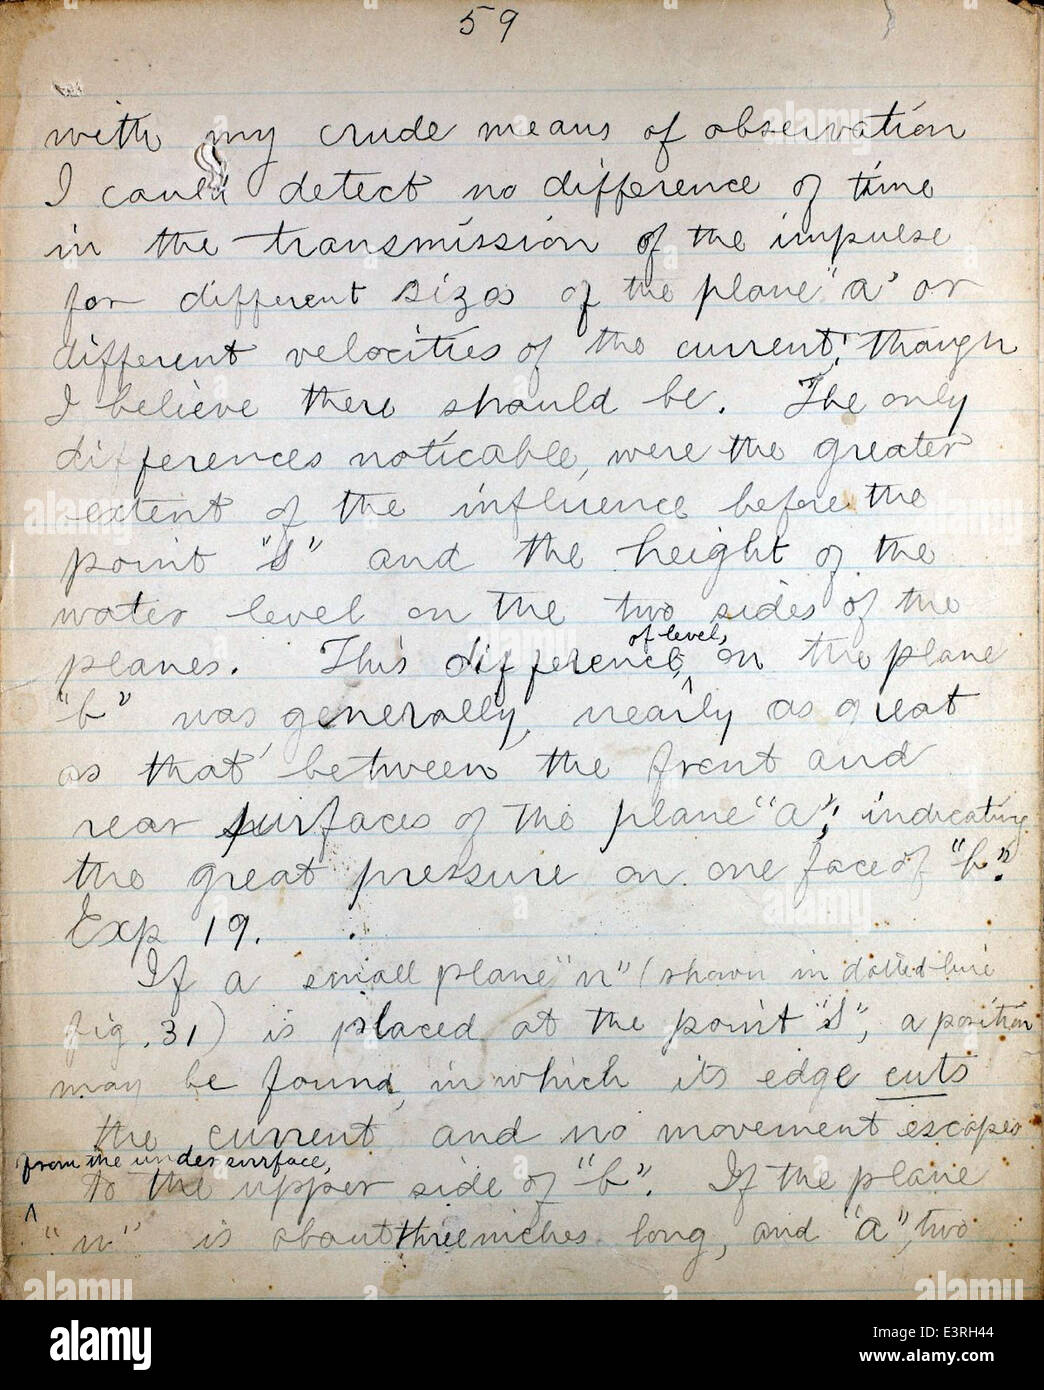 59
with my crude means of observation
I could detect no difference of time
in the transmission of the impulse
for different sizes of the plane "a" or
different velocities of the current, though
I believe there should be. The only
differences noticable, were the greater
extent of the influence before the
point "S" and the height of the
water level on the two sides of the
planes. This difference of level, on the plane
"b" was generally, nearly as great
as that between the front and
rear surfaces of the plane "a", indicating
the great pressure on one face of "b".
Exp 19.
If a small plane "n" (shown in dotted line
fig. 31) is placed at the point "S", a position
may be found, in which its edge cuts
the current and no movement escapes
from the under surface,
to the upper side of "b". If the plane
"n" is about three inches long, and "a", two
alamy
Image ID: E3RH44
www.alamy.com